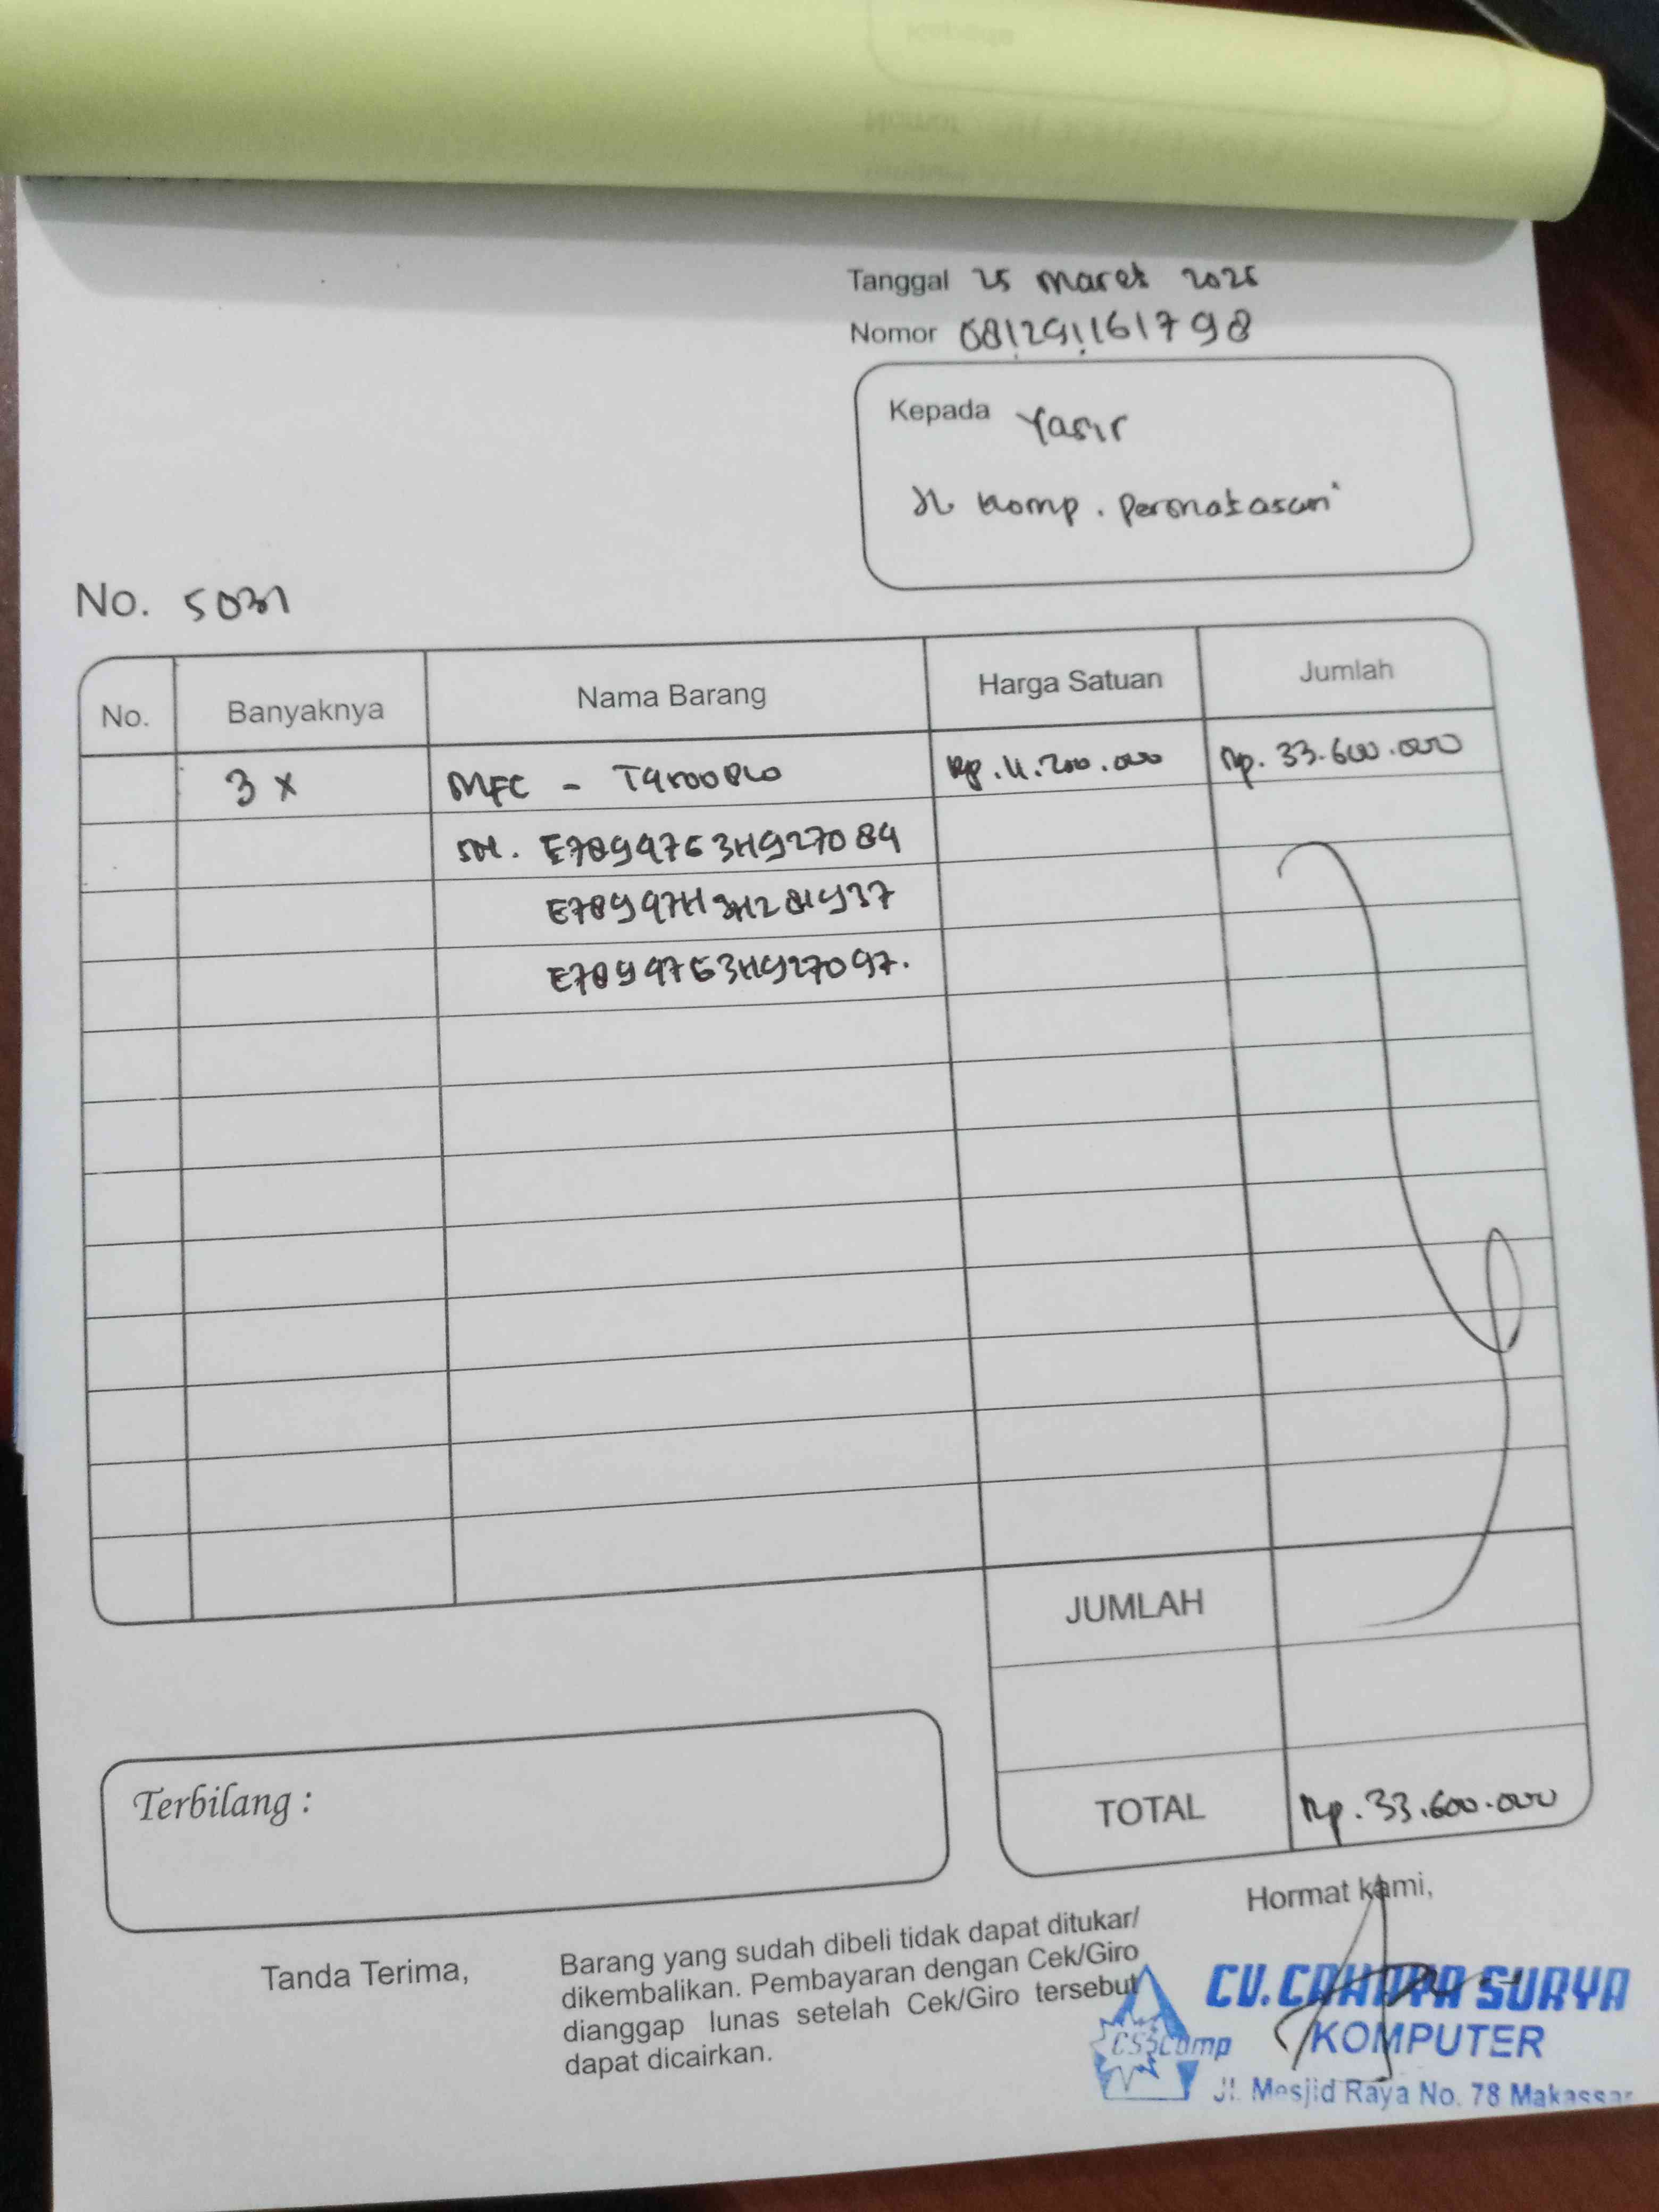 Tanggal 25 Maret 2025
Nomor 081291161798
Kepada Yasir
Jl Komp. Permatasari
No. 5031
No. Banyaknya Nama Barang Harga Satuan Jumlah
3 x MFC - T4500DW Rp. 11.200.000 Rp. 33.600.000
SN. E78994763H927084
E78994763H927097.
JUMLAH
TOTAL Rp. 33.600.000
Terbilang :
Hormat kami,
Tanda Terima,
Barang yang sudah dibeli tidak dapat ditukar/
dikembalikan. Pembayaran dengan Cek/Giro
dianggap lunas setelah Cek/Giro tersebut
dapat dicairkan.
CV. CAHAYA SURYA
CSComp KOMPUTER
Jl. Mesjid Raya No. 78 Makassar